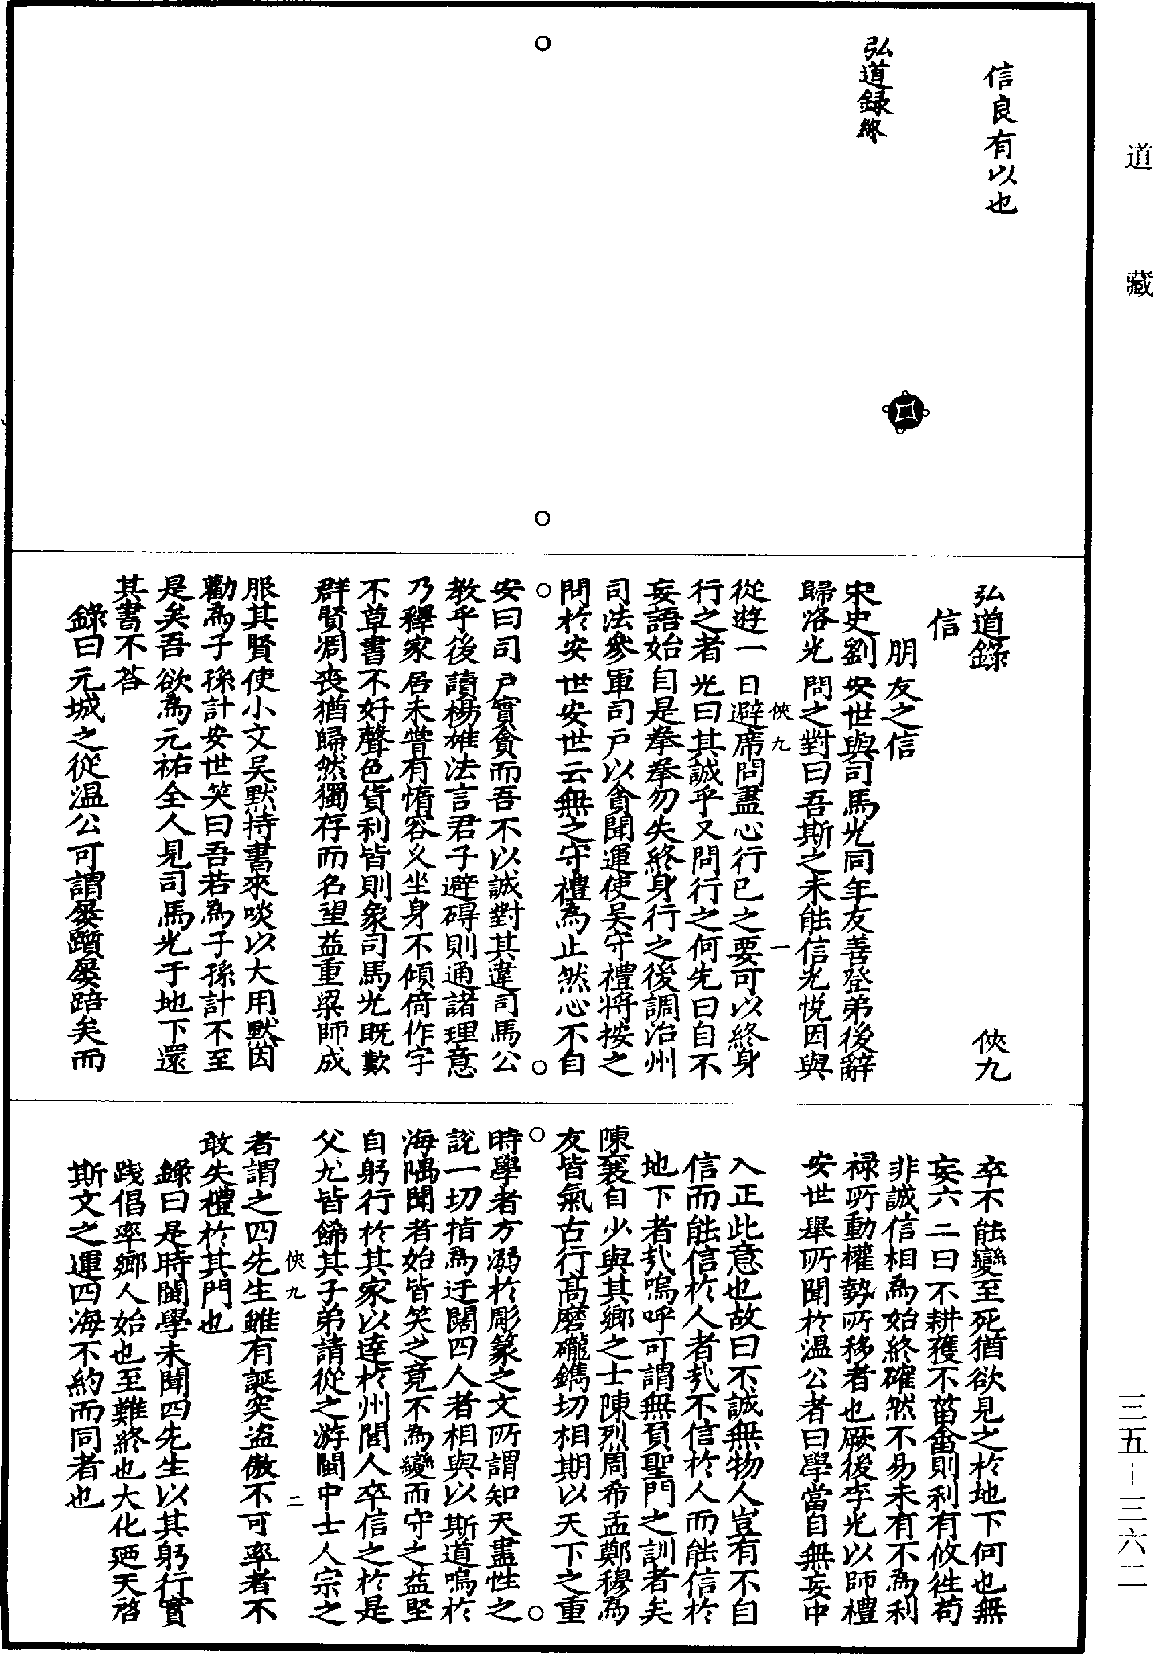 道藏
信良有以也
弘道録終
弘道錄
俠九
信
朋友之信
宋史劉安世與司馬光同年友善登弟後辭
歸洛光問之對曰吾斯之未能信光悅因與
俠九
一
從遊一日避席問盡心行己之要可以終身
行之者光曰其誠乎又問行之何先曰自不
妄語始自是拳拳勿失終身行之後調洺州
司法參軍司戶以貪聞運使吳守禮將按之
問於安世安世云無之守禮為止然心不自
安曰司戶實貪而吾不以誠對其違司馬公
教乎後讀楊雄法言君子避礙則通諸理意
乃釋家居未嘗有惰容乂坐身不傾倚作字
不草書不好聲色貨利皆則象司馬光既歎
群賢凋喪猶歸然獨存而名望益重梁師成
服其賢使小文吳默持書來啖以大用默因
勸為子孫計安世笑曰吾若為子孫計不至
是矣吾欲為元祐全人見司馬光于地下還
其書不荅
錄曰元城之從溫公可謂屢躓屢踣矣而
卒不能變至死猶欲見之於地下何也無
妄六二曰不耕獲不菑畬則利有攸往苟
非誠信相為始終確然不易未有不為利
祿所動權勢所移者也厥後李光以師禮
安世舉所聞於溫公者曰學當自無妄中
入正此意也故曰不誠無物人豈有不自
信而能信於人者㢤不信於人而能信於
地下者㢤嗚呼可謂無負聖門之訓者矣
陳襄自少與其鄉之士陳烈周希孟鄭穆為
友皆氣古行高磨礲鐫切相期以天下之重
時學者方溺於彫篆之文所謂知天盡性之
說一切指為迂闊四人者相與以斯道鳴於
海隅聞者始皆笑之竟不為變而守之益堅
自躬行於其家以達於州閭人卒信之於是
父兄皆飾其子弟請從之游閩中士人宗之
俠九
二
者謂之四先生雖有誕突盜傲不可率者不
敢失禮於其門也
錄曰是時閩學未聞四先生以其躬行實
踐倡率鄉人始也至難終也大化廼天啓
斯文之運四海不約而同者也
三五-三六二